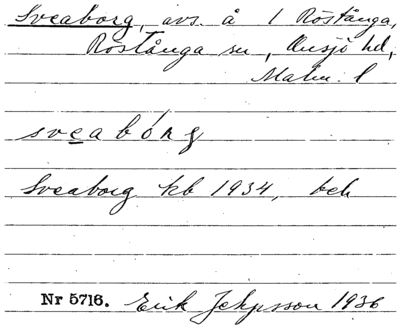 Sveaborg, avs. å 1 Röstånga,
Röstånga sn, Onsjö hd,
Malm. l
sveabórg
Sveaborg kb 1934, beb
Nr 5716. Erik Jeppsson 1936